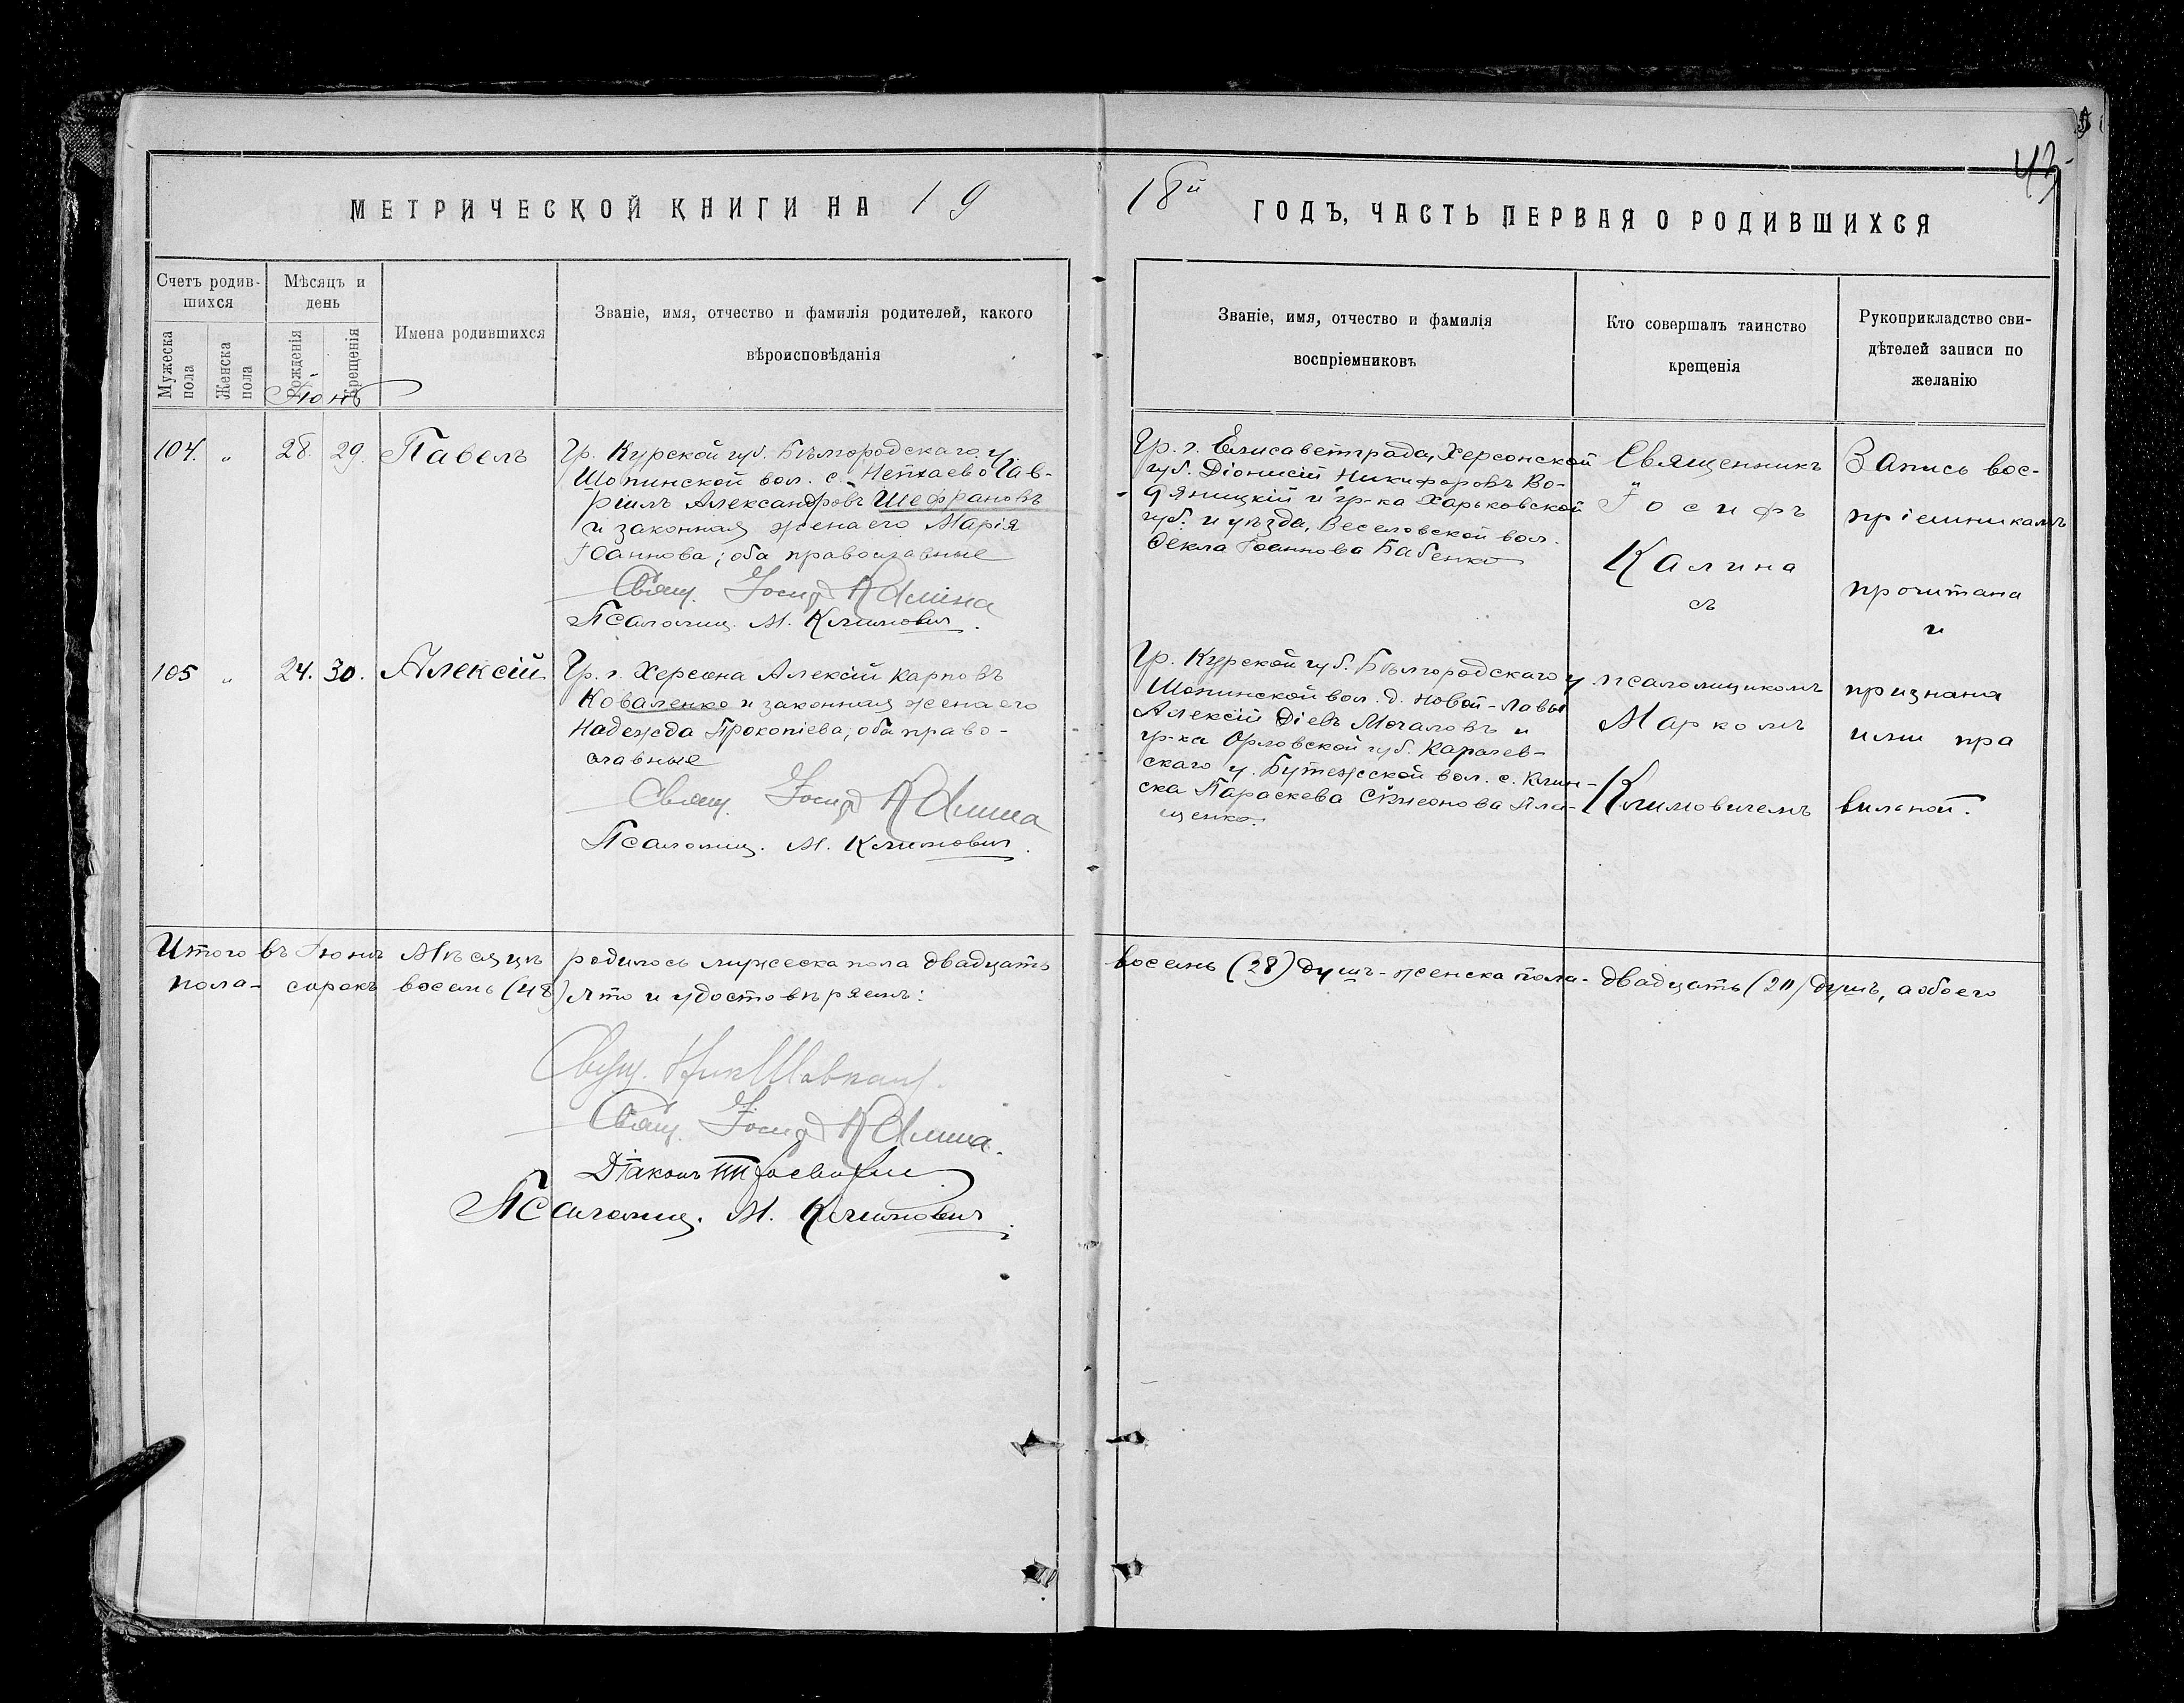 43
МЕТРИЧЕСКОЙ КНИГИ НА 19 18й ГОДЪ, ЧАСТЬ ПЕРВАЯ О РОДИВШИХСЯ
Счетъ родив-
шихся
Мужеска пола
Женска пола
Мѣсяцъ и
день
Рожденія
Крещенія
Имена родившихся
Званіе, имя, отчество и фамилія родителей, какого
вѣроисповѣданія
Званіе, имя, отчество и фамилія
воспріемниковъ
Кто совершалъ таинство
крещенія
Рукоприкладство сви-
дѣтелей записи по
желанію
Іюнь
104. " 28. 29. Павелъ
Гр. Курской губ. Бѣлгородскаго у.
Шопинской вол. с. Непхаево Гав-
ріилъ Александровъ Шефрановъ
и законная жена его Марія
Іоаннова; оба православные
Свящ. Іосиф Калина
Псаломщ. М. Климович.
Гр. г. Елисаветграда, Херсонской
губ. Діонисій Никифоровъ Во-
дяницкій и гр-ка Харьковской
губ. и уѣзда, Веселовской вол.
Ѳекла Іоаннова Бабенко
105 " 24. 30. Алексій
Гр. г. Херсона Алексій Карповъ
Коваленко и законная жена его
Надежда Прокопіева; оба право-
славные
Свящ. Іосиф Калина
Псаломщ. М. Климович.
Гр. Курской губ. Бѣлгородскаго у
Шопинской вол. д. Новой-Лавы
Алексій Діевъ Мочаловъ и
гр-ка Орловской губ. Карачев-
скаго у. Бутежской вол. с. Клин-
ска Параскева Сѵмеонова
щенко.
Священникъ
Іосифъ
Калина
съ
псаломщикомъ
Маркомъ
Климовичемъ
Запись вос-
пріемникамъ
прочитана
и
признана
ими пра
вильной.
Итого въ Іюнѣ мѣсяцѣ родилось мужеска пола двадцать восемь (28) душъ - женска пола - двадцать (20) душъ, а обоего
пола - сорокъ восемь (48) что и удостовѣряемъ:
Свящ.
Свящ. Іосиф Калина.
Діаконъ
Псаломщ. М. Климович.